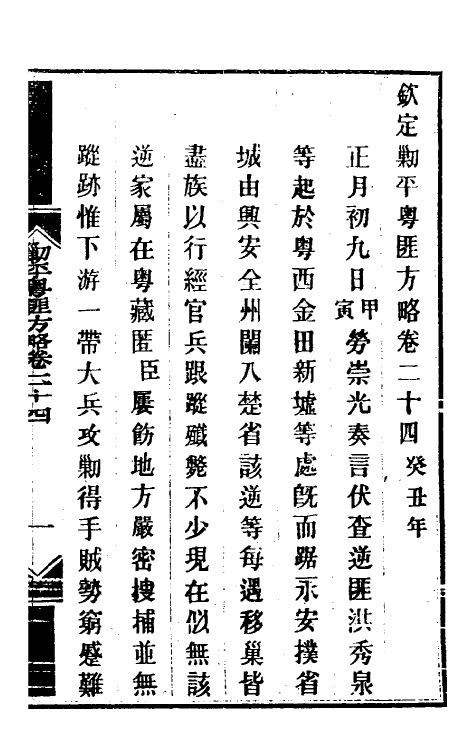 欽定勦平粵匪方略卷二十四癸丑年
正月初九日甲寅勞崇光奏言伏查逆匪洪秀泉
等起於粵西金田新墟等處旣而踞永安撲省
城由興安全州闌入楚省該逆等每遇移巢皆
盡族以行經官兵跟蹤殲斃不少現在似無該
逆家屬在粵藏匿臣屢飭地方嚴密搜捕並無
蹤跡惟下游一帶大兵攻勦得手賊勢窮蹙難
勦平粵匪方略卷二十四
一